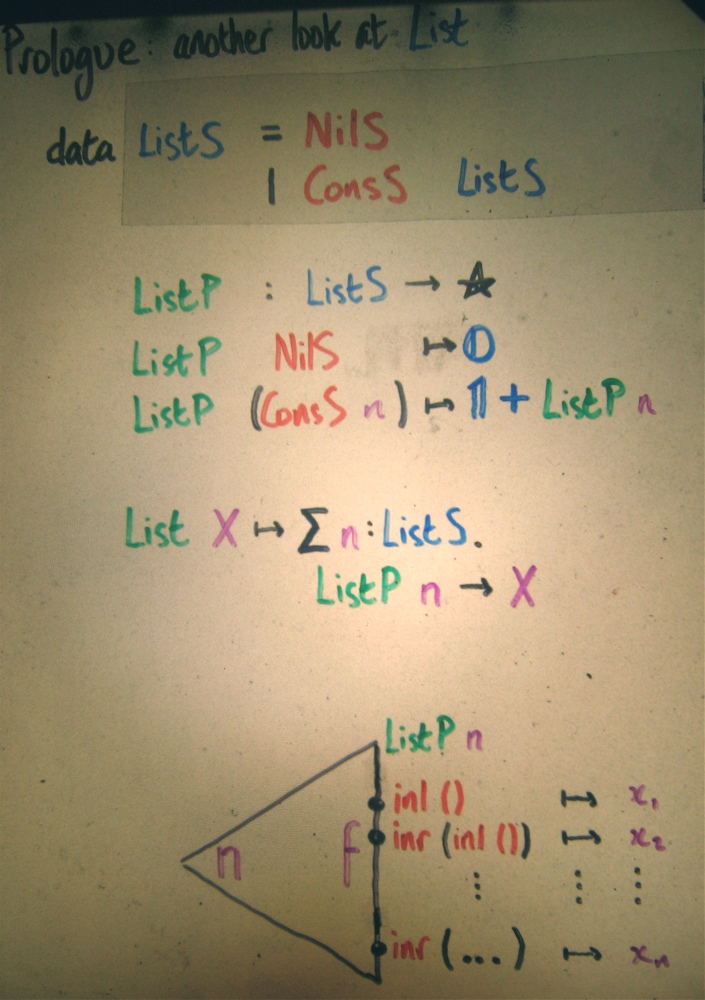 Prologue: another look at List
data ListS = NilS
| ConsS ListS
ListP : ListS → ★
ListP NilS ↦ 𝟘
ListP (ConsS n) ↦ 𝟙 + ListP n
List X ↦ Σ n:ListS.
ListP n → X
ListP n
inl () ↦ x₁
inr (inl ()) ↦ x₂
n f
⋮ ⋮ ⋮
inr (...) ↦ xₙ